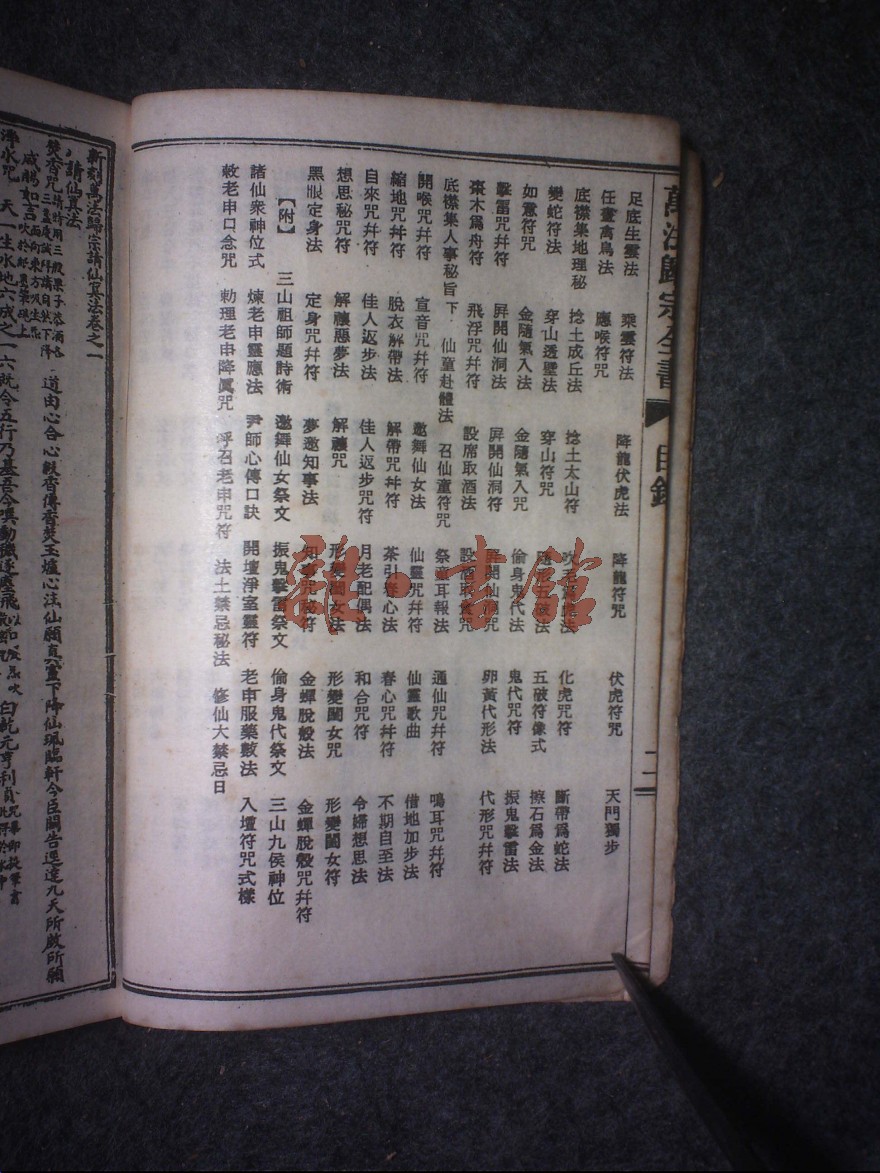 萬法歸宗全書 目錄 二
足底生雲法 乘雲符法 降龍伏虎法 降龍符咒 伏虎符咒 天門獨步
任畫禽鳥法 應喉符咒
底襟集地理秘 捻土成丘法 捻土太山符 吹毛 化虎咒符 斷帶爲蛇法
變蛇符法 穿山透壁法 穿山符咒 五破法 五破符像式 擦石爲金法
如意符咒 金隨氣入法 金隨氣入咒 偷身鬼代法 鬼代咒符 振鬼擊雷法
擊雷咒幷符 屏開仙洞法 屏開仙洞符 屏開仙洞咒 卵黃代形法 代形咒幷符
棗木爲舟符 飛浮咒幷符 設席取酒法 設酒取食咒
底襟集人事秘旨下 仙童赴體法 召仙童符咒 祭童耳報法 通仙咒幷符 鳴耳咒幷符
開喉咒幷符 宣音咒幷符 邀舞仙女法 仙靈咒幷符 仙靈歌曲 借地加步法
縮地咒幷符 脫衣解帶法 解帶咒幷符 茶引春心法 春心咒幷符 不期自至法
自來咒幷符 佳人返步法 佳人返步咒符 月老配偶法 和合咒符 令婦想思法
想思秘咒符 解禳惡夢法 解禳咒 形變閨女法 形變閨女咒 形變閨女符
黑眼定身法 定身咒幷符 夢邀知事法 知事咒秘符 金蟬脫殼法 金蟬脫殼咒幷符
【附】 三山祖師題詩術 邀舞仙女祭文 振鬼擊雷祭文 偷身鬼代祭文 三山九侯神位
諸仙衆神位式 煉老申靈應法 尹師心傳口訣 開壇淨室靈符 老申服藥數法 入壇符咒式樣
敕老申口念咒 勅理老申降眞咒 呼召老申咒符 法士禁忌秘法 修仙大禁忌日
雅·書館
新刻萬法歸宗請仙箕法卷之一
請仙箕法
焚香咒 道由心合心叚香傳香焚玉爐心注仙願真靈下降仙珮臨軒今臣關告逕達九天所啟所願
淨水咒 天一生水地六成之一六既合五行乃基吾今噀動穢逐塵飛